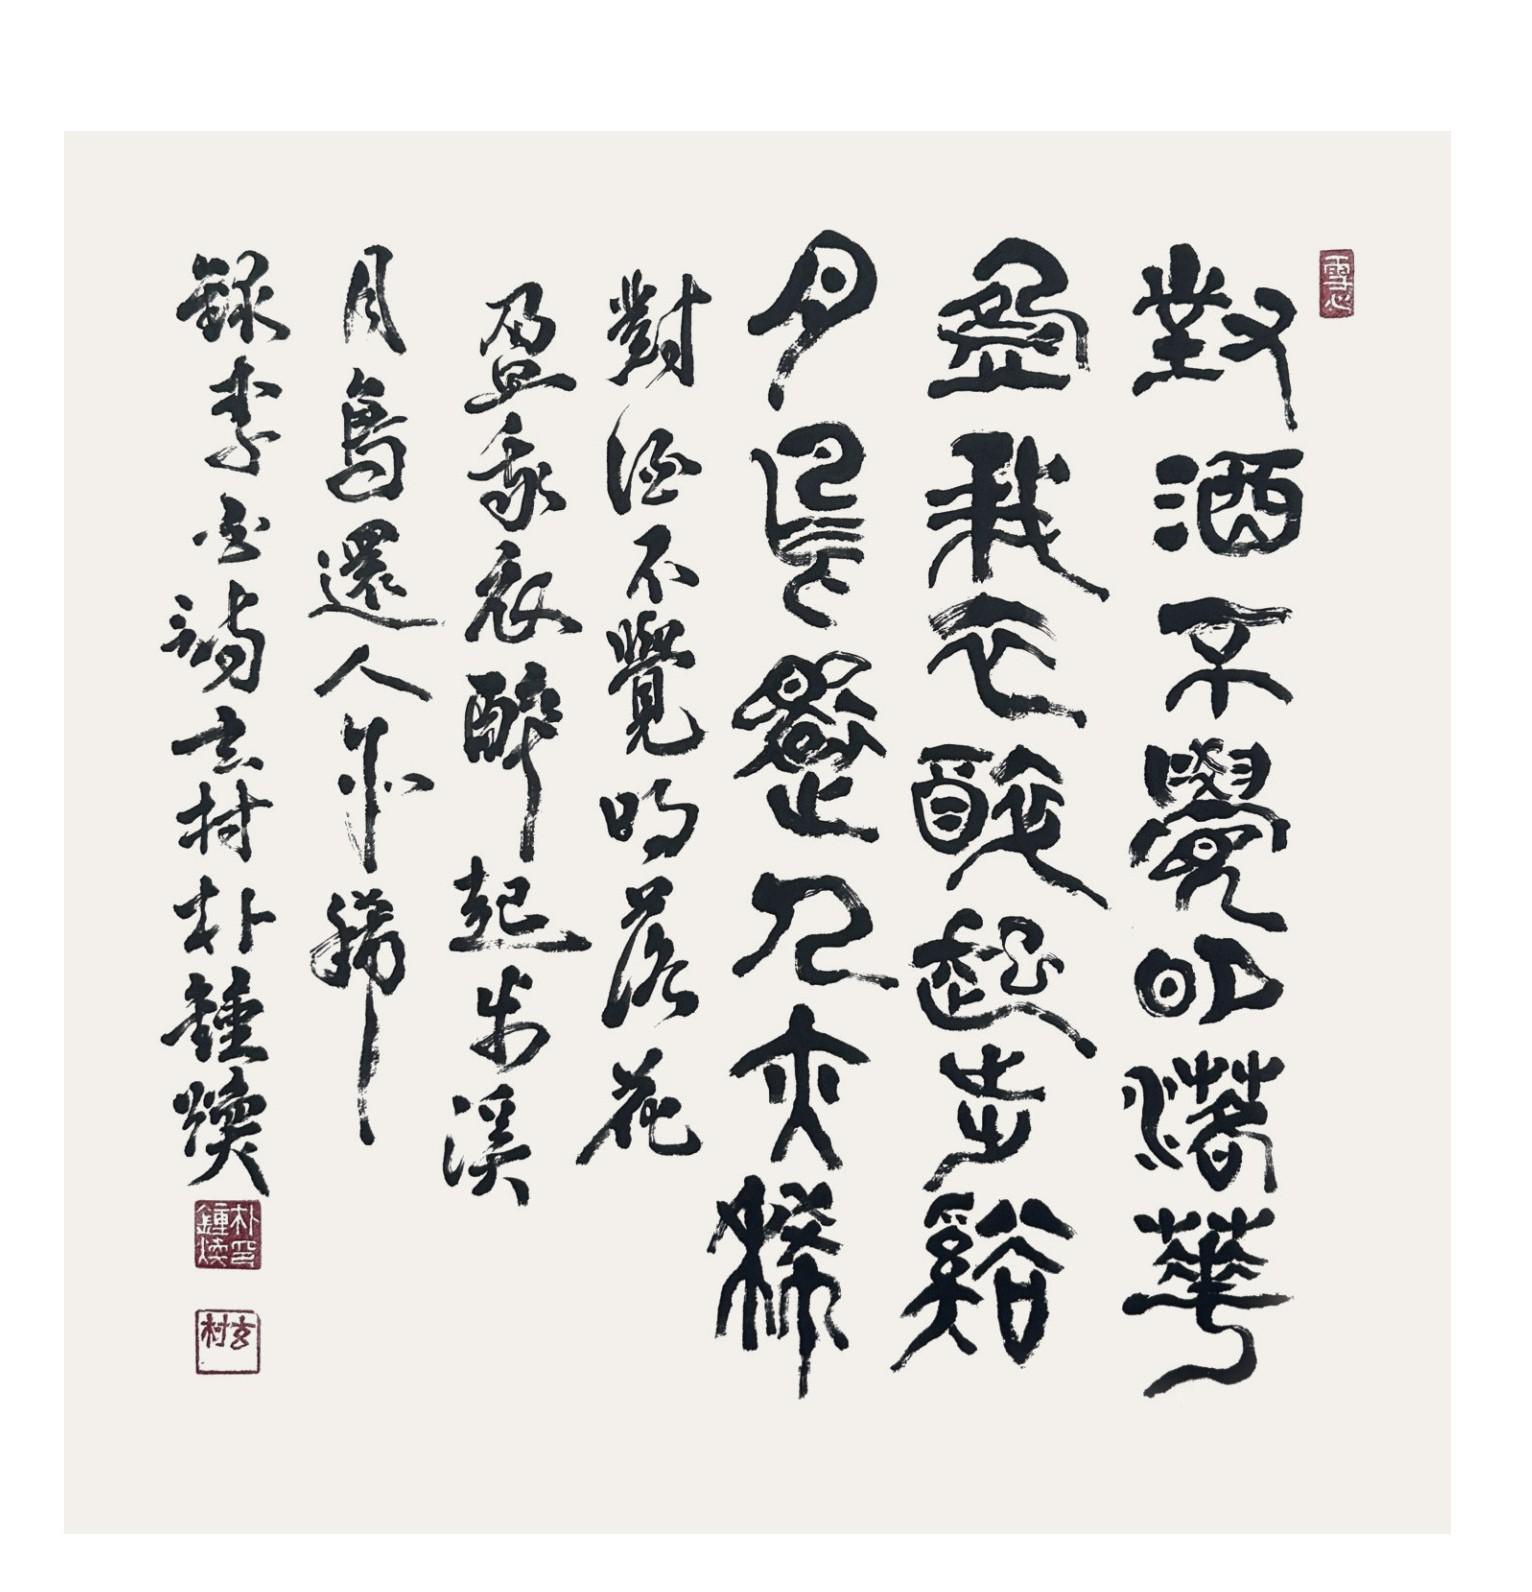 對酒不覺明落華
盈我衣醉起步谿
月鳥還人亦稀
對酒不覺明落花
盈我衣醉起步溪
月鳥還人亦稀
錄李白詩玄村朴鍾煥
朴印
鍾煥
玄村